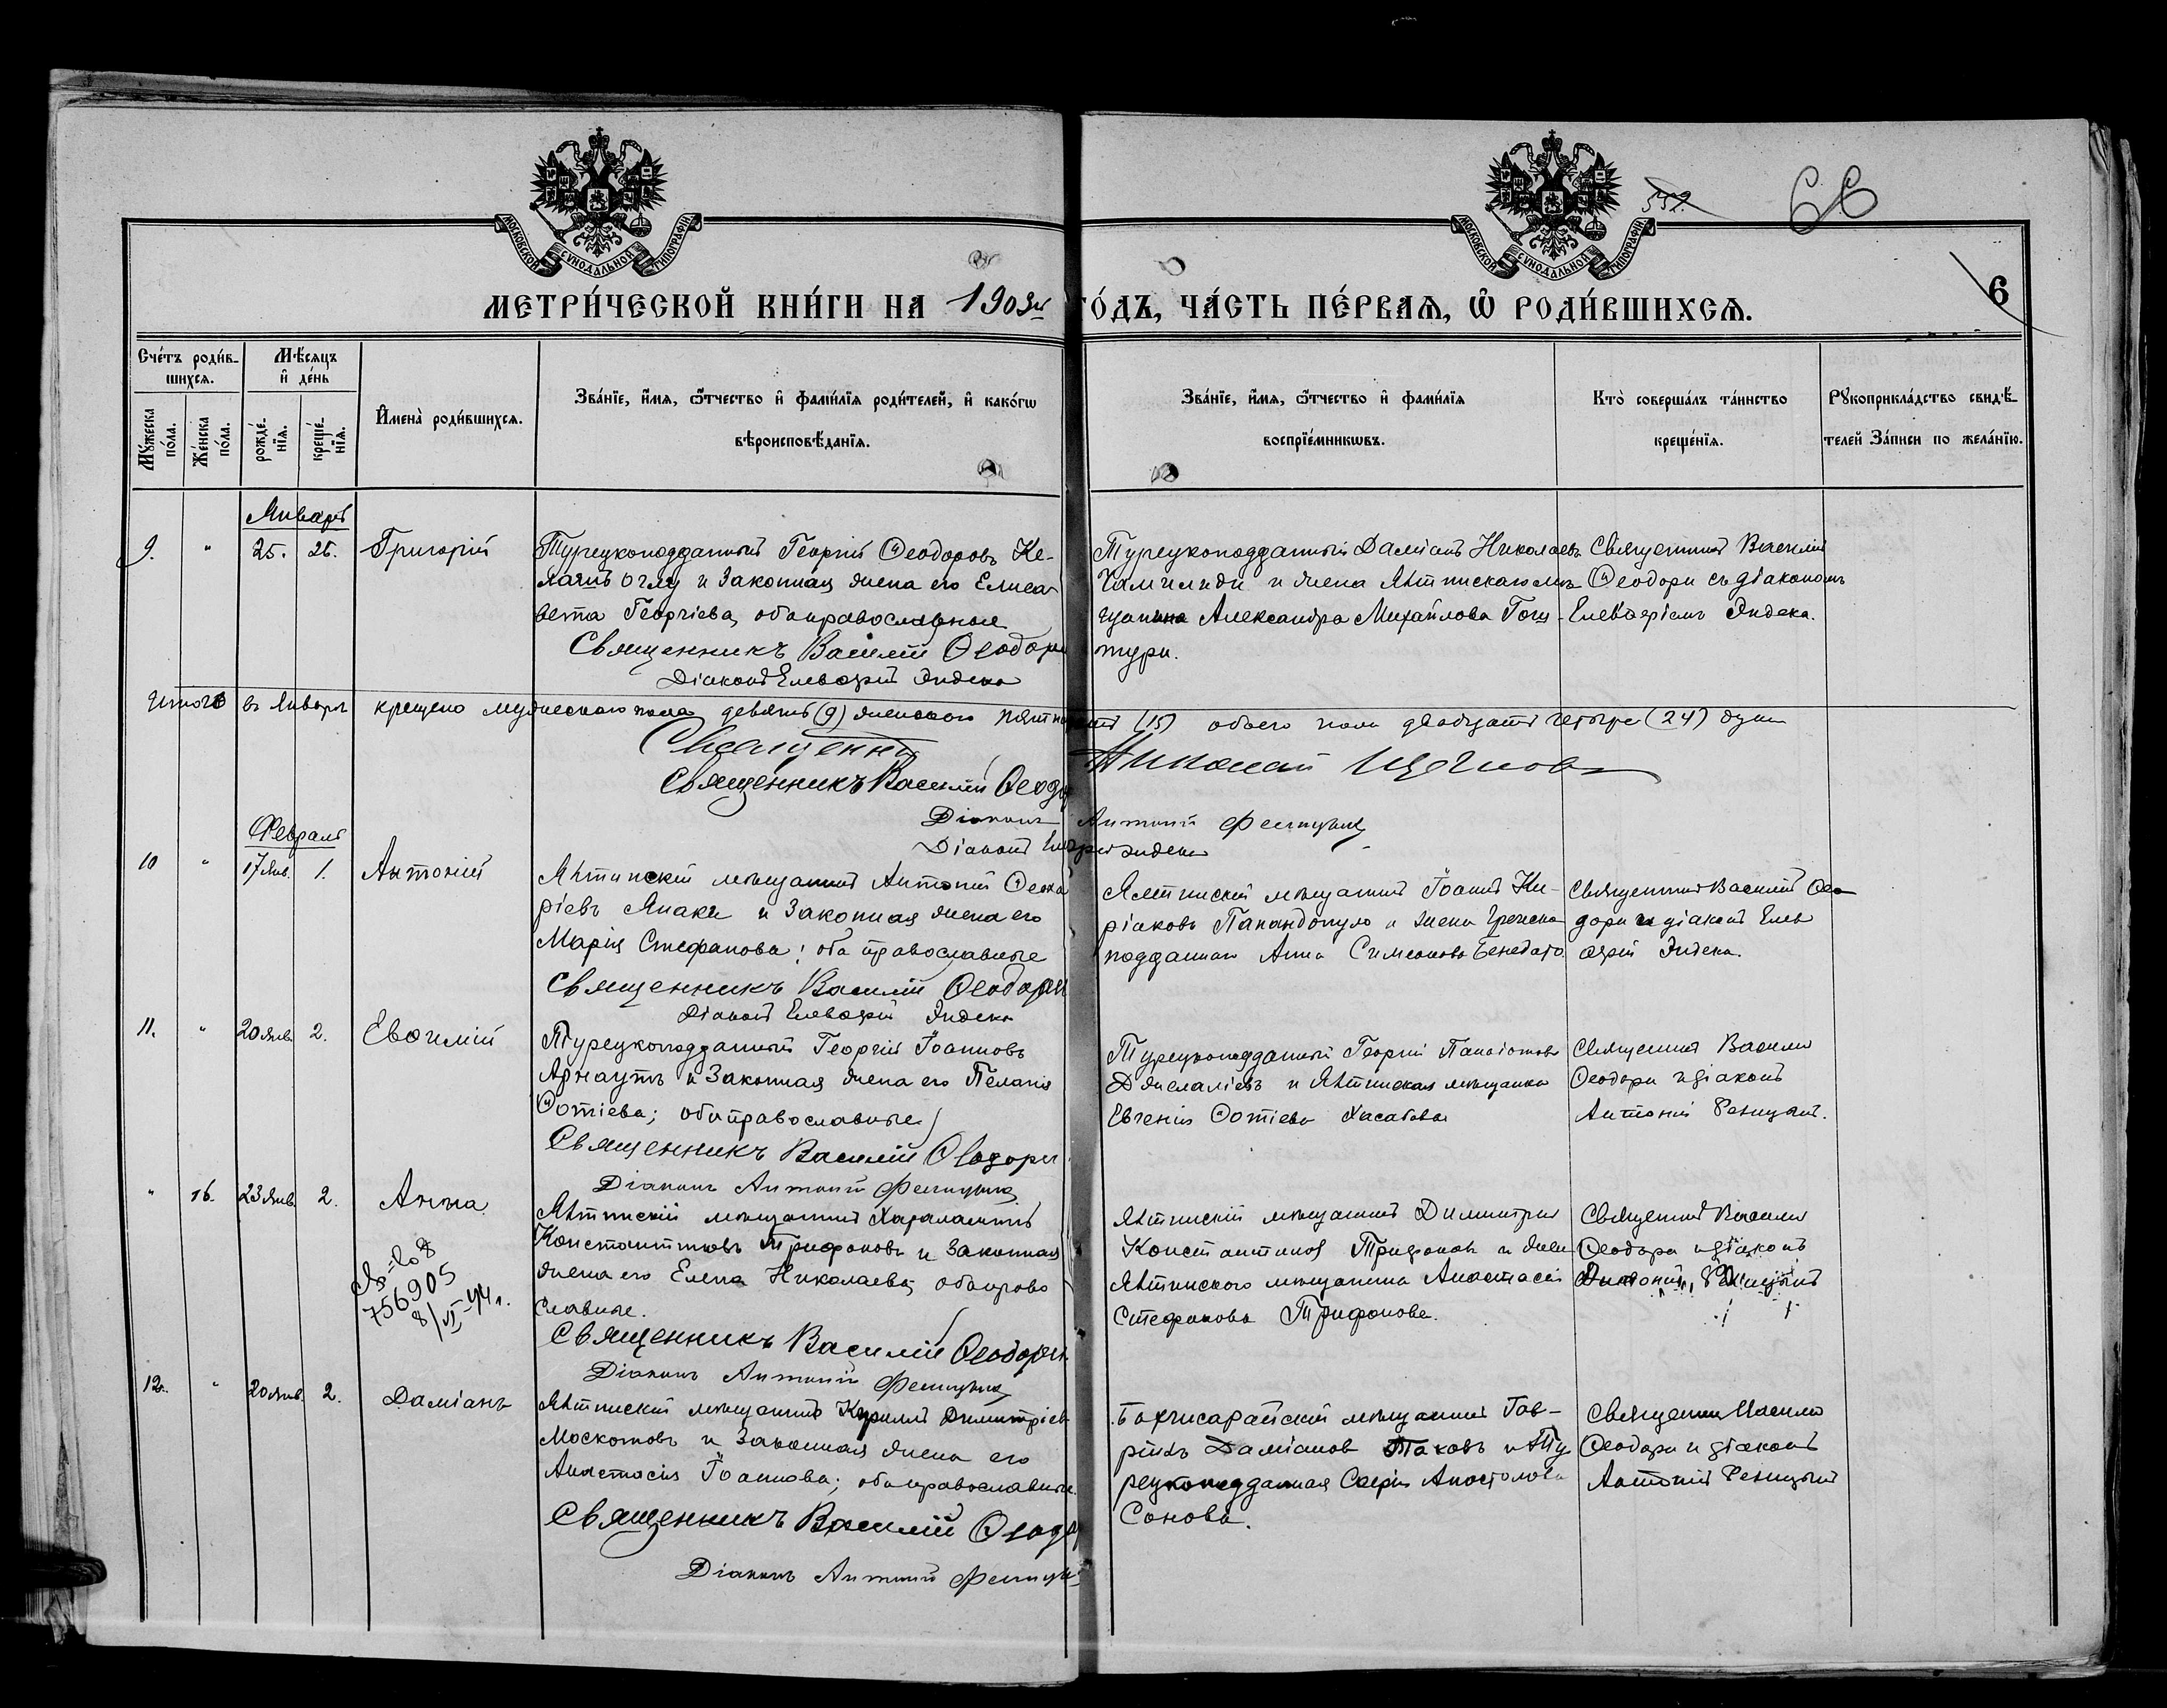 МОСКОВСКОЙ СѴНОДАЛЬНОЙ ТИПОГРАФІИ
МОСКОВСКОЙ СѴНОДАЛЬНОЙ ТИПОГРАФІИ
552.
66
6
МЕТРИ́ЧЕСКОЙ КНИ́ГИ НА 1903й ГО́ДЪ, ЧА́СТЬ ПЕ́РВАѦ, Ѡ҆ РОДИ́ВШИХСѦ.
Сче́тъ роди́вшихсѧ.
Мꙋ́жеска по́ла.
Же́нска по́ла.
Мѣ́сѧцъ и҆ де́нь
рожде́нїѧ.
креще́нїѧ.
И҆мена̀ роди́вшихсѧ.
Зва́нїе, и҆́мѧ, ѻ҆́тчество и҆ фами́лїѧ роди́телей, и҆ како́гѡ
вѣроисповѣ́данїѧ.
Зва́нїе, и҆́мѧ, ѻ҆́тчество и҆ фами́лїѧ
воспрїе́мникѡвъ.
Кто̀ соверша́лъ та́инство
креще́нїѧ.
Рꙋкоприкла́дство свидѣ́телей За́писи по жела́нїю.
Январь
9. " 25. 26. Григорій
Турецкоподданный Георгій Ѳеодоровъ Ке-
лаянъ Оглу и законная жена его Елиса-
вета Георгіева, оба православные
Священникъ Василій Ѳеодори
Діаконъ Елевѳерій Эндека
Турецкоподданный Даміанъ Николаевъ
Чамилиди и жена Ялтинскаго мѣ-
щанина Александра Михайлова Гощ-
тури.
Священникъ Василій
Ѳеодори съ діакономъ
Елевѳеріемъ Эндека.
Итого въ Январѣ крещено мужескаго пола девять (9) женскаго пятнадцать (15) обоего пола двадцать четыре (24) души
Священникъ Николай
Священникъ Василій Ѳеодори
Діаконъ Антоній
Діаконъ Елевѳерій Эндека
Февраль
10 " 17 Янв. 1. Антоній
Ялтинскій мѣщанинъ Антоній
ріевъ Янаки и законная жена его
Марія Стефанова; оба православные
Священникъ Василій Ѳеодори
Діаконъ Елевѳерій Эндека
Ялтинскій мѣщанинъ Іоаннъ Ки-
ріаковъ Папандопуло и жена Греческо-
подданнаго Анна Симеонова Бенедато
Священникъ Василій Ѳео-
дори и діаконъ Елев-
ѳерій Эндека.
11. " 20 Янв. 2. Евѳимій
Турецкоподданный Георгій Іоанновъ
Арнаутъ и законная жена его Пелагія
Ѳотіева; оба православные
Священникъ Василій Ѳеодори
Діаконъ Антоній
Турецкоподданный Георгій Панаіотовъ
Джелаліевъ и Ялтинская мѣщанка
Евгенія Ѳотіева Хасабова
Священникъ Василій
Ѳеодори и діаконъ
Антоній
" 16. 23 Янв. 2. Анна
756905
8/VI-44 г.
Ялтинскій мѣщанинъ Харалампій
Константиновъ Трифоновъ и законная
жена его Елена Николаева, оба право
славные.
Священникъ Василій Ѳеодори
Діаконъ Антоній
Ялтинскій мѣщанинъ Димитрій
Константиновъ Трифоновъ и жена
Ялтинскаго мѣщанина Анастасія
Стефанова Трифонова.
Священникъ Василій
Ѳеодори и діаконъ
Антоній
12. " 20 Янв. 2. Даміанъ
Ялтинскій мѣщанинъ Кириллъ Димитріевъ
Москотовъ и законная жена его
Анастасія Іоаннова; оба православные.
Священникъ Василій Ѳеодори
Діаконъ Антоній
Бахчисарайскій мѣщанинъ Гав-
ріилъ Даміановъ Таховъ и Ту-
рецкоподданная Софія Апостолова
Сонова.
Священникъ Василій
Ѳеодори и діаконъ
Антоній